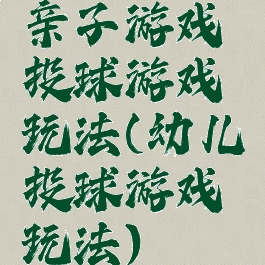 亲子游戏
投球游戏
玩法(幼儿
投球游戏
玩法)